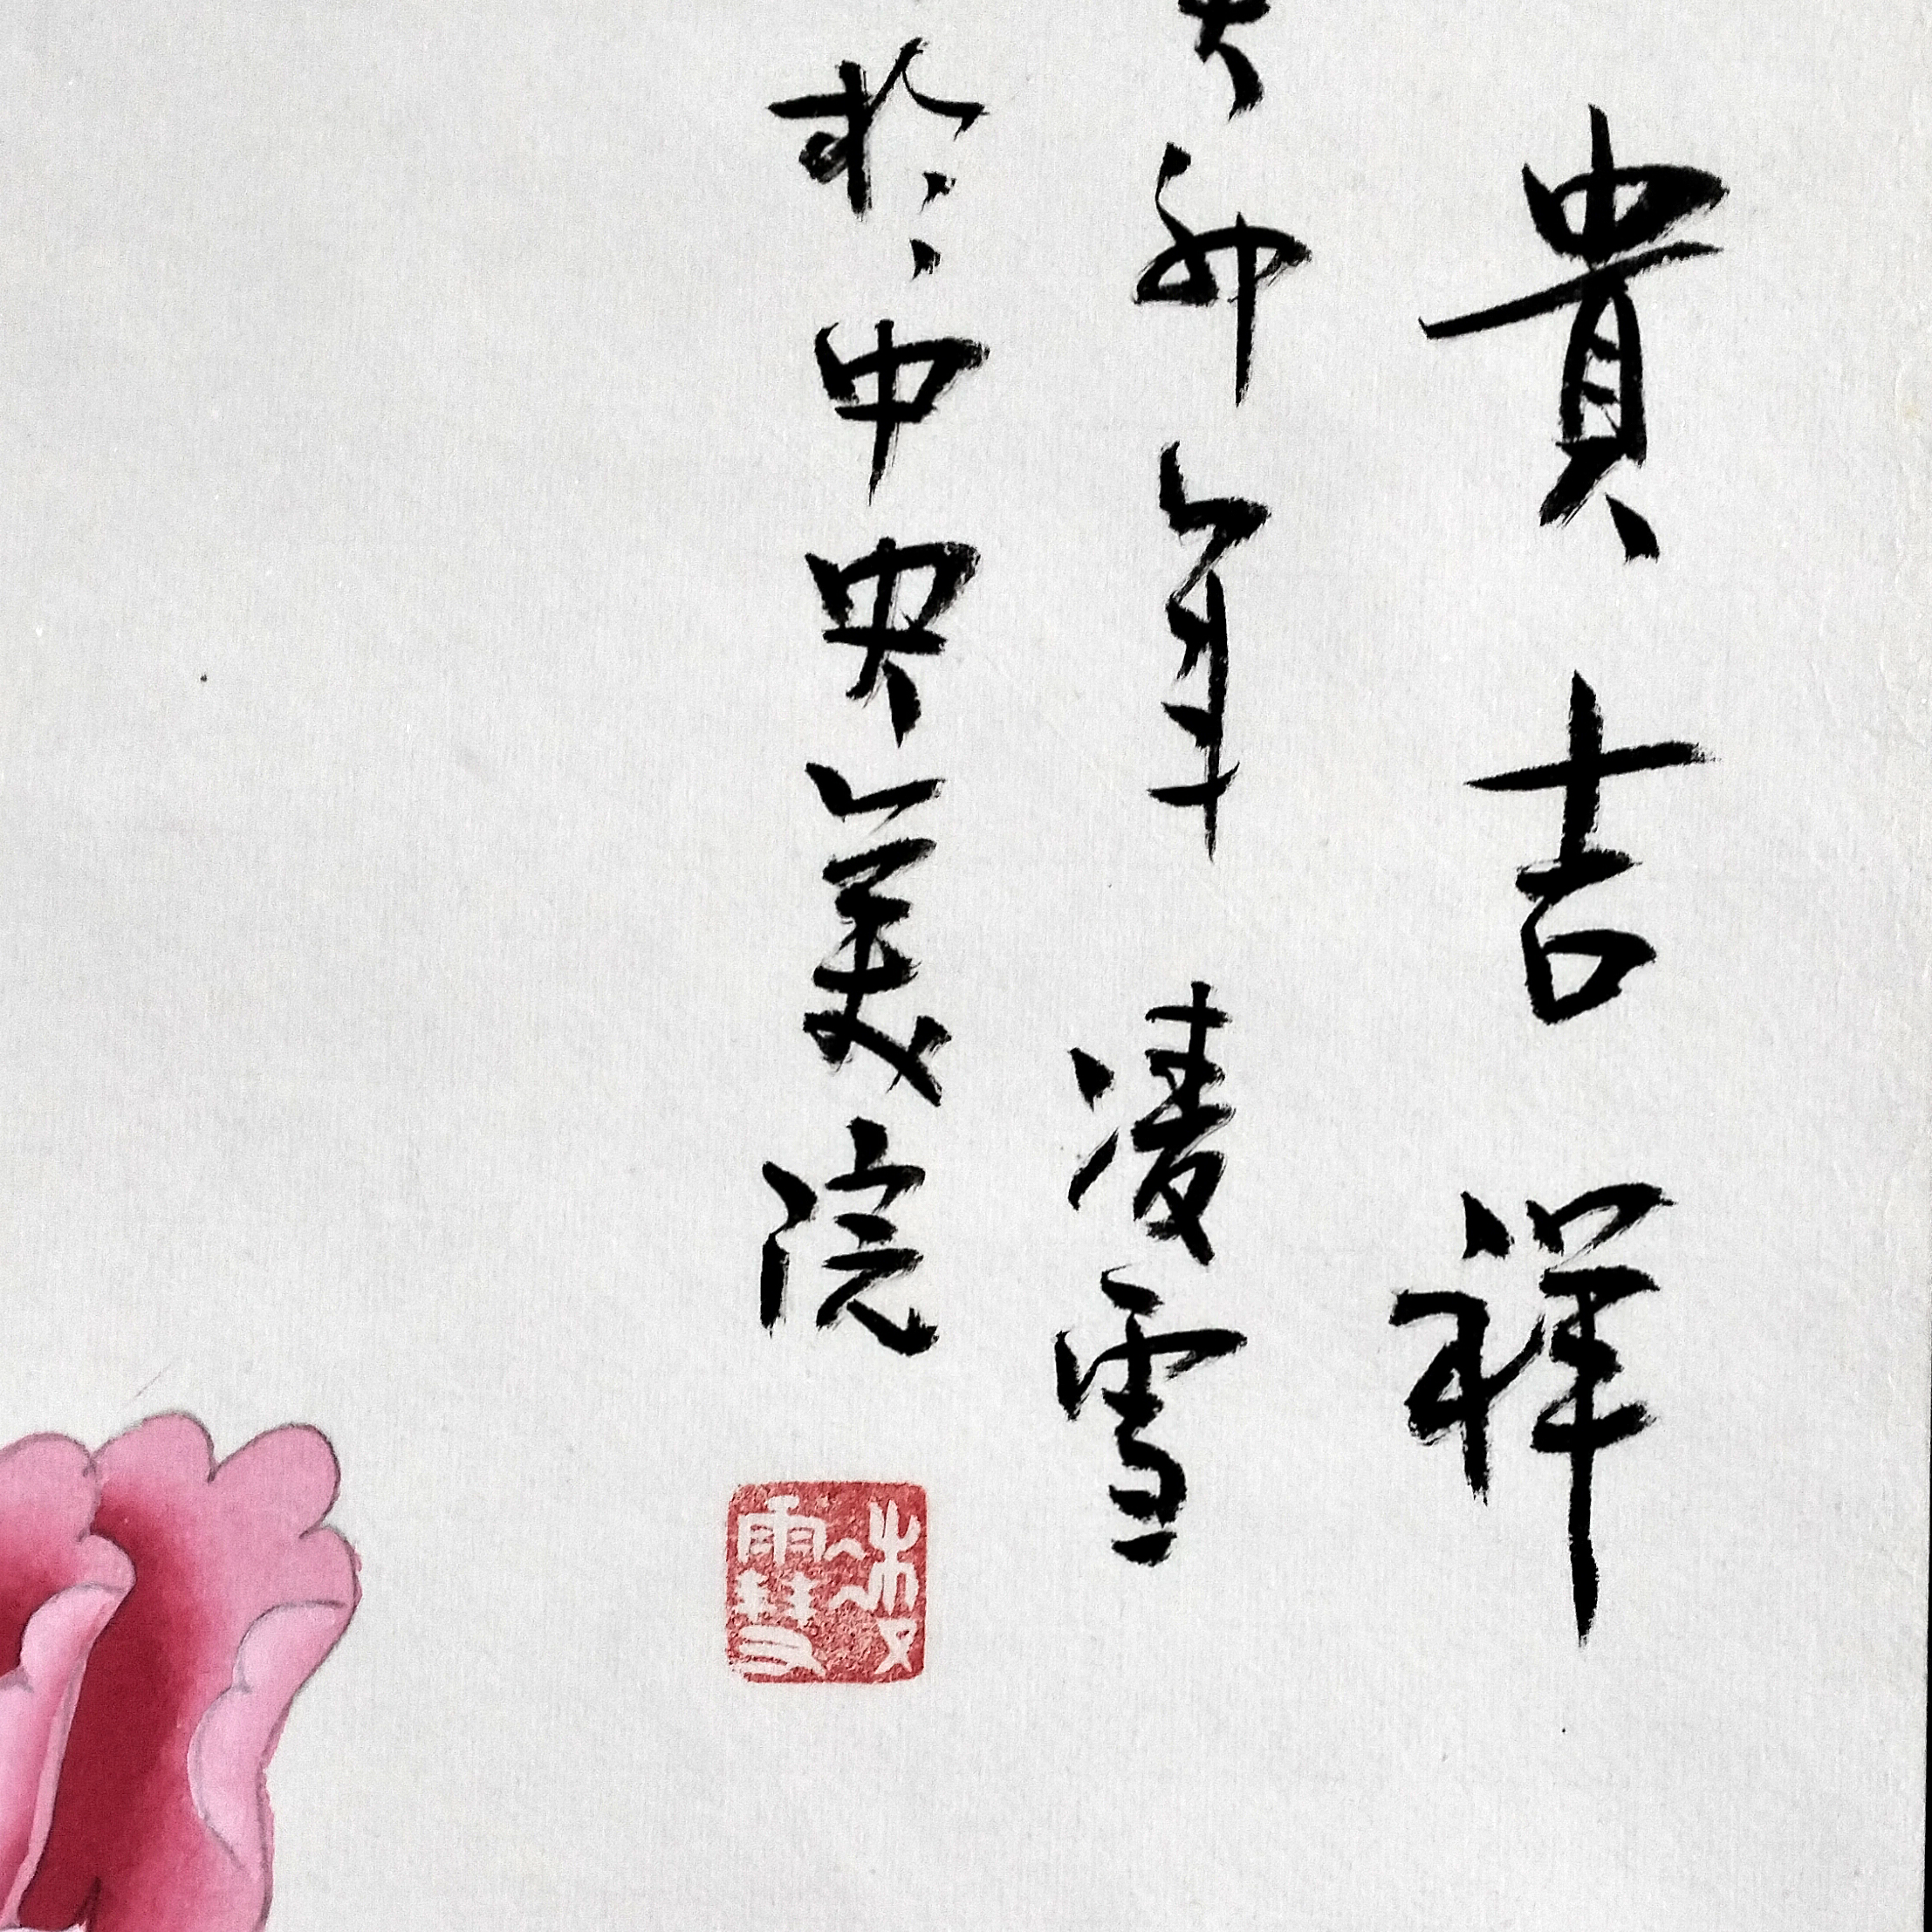 貴吉祥
卯年凌雪
於中央美院
凌雪